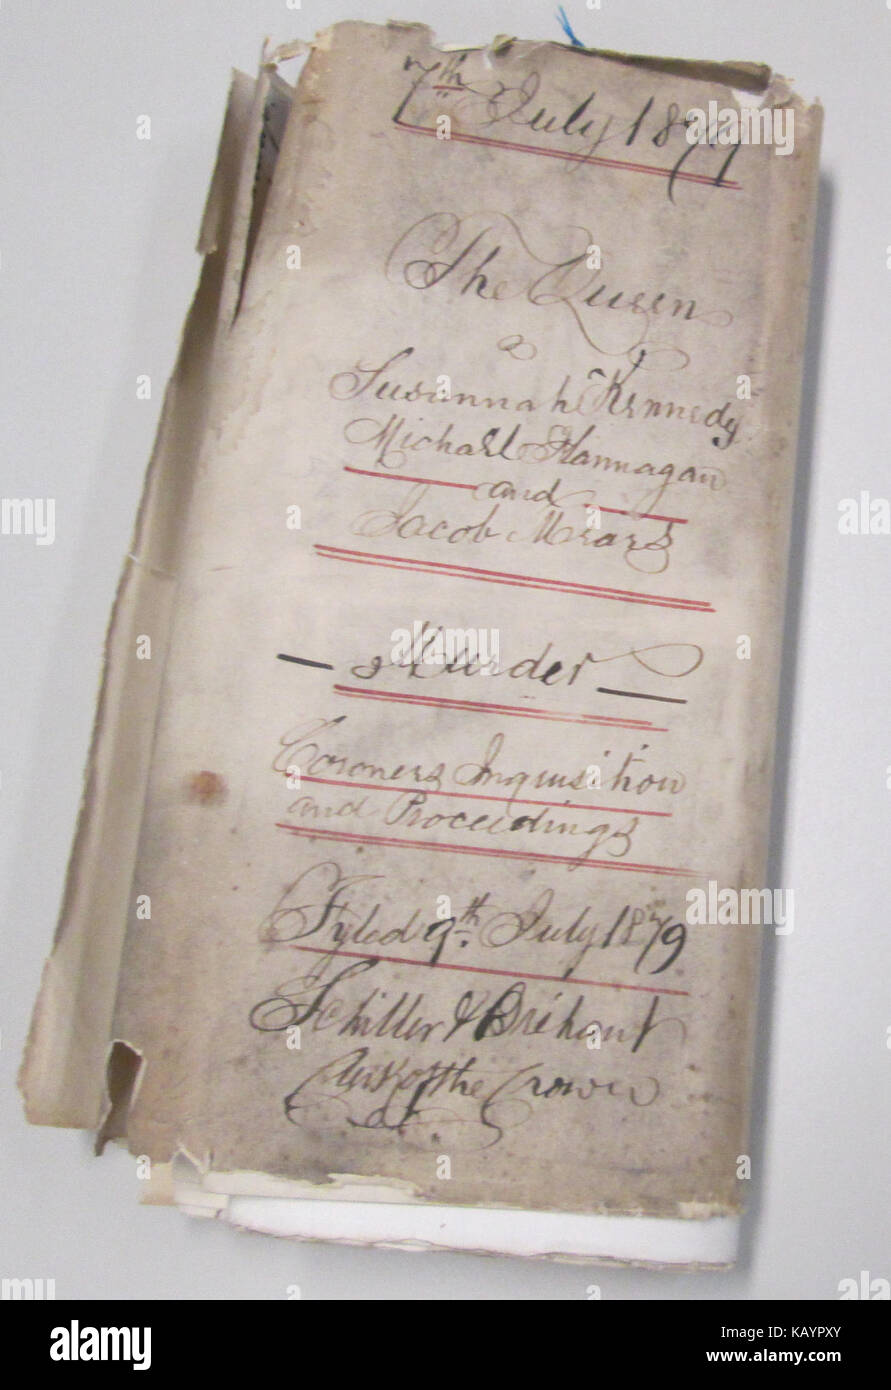 7th July 1879
The Queen
a
Susannah Kennedy
Michael Flannagan
and
Jacob Mears
Murder
Coroners Inquisition
and Proceedings
Fyled 9th July 1879
Schiller & Bréhaut
Clerk of the Crown
alamy
Image ID: KAYPXY
www.alamy.com